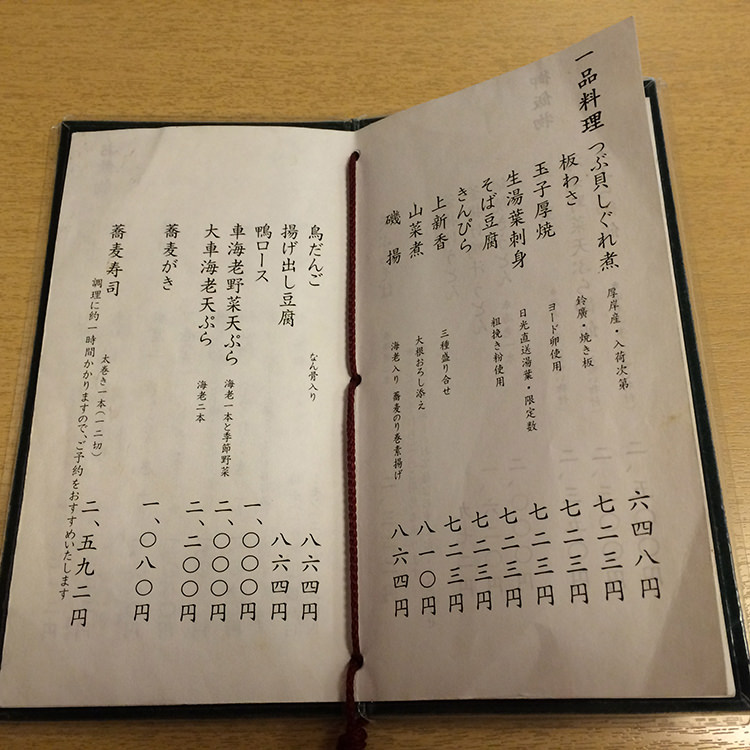 一品料理
つぶ貝しぐれ煮 厚岸産・入荷次第 六四八円
板わさ 鈴廣・焼き板 七二三円
玉子厚焼 ヨード卵使用 七二三円
生湯葉刺身 日光直送湯葉・限定数 七二三円
そば豆腐 粗挽き粉使用 七二三円
きんぴら 七二三円
上新香 三種盛り合せ 七二三円
山菜煮 大根おろし添え 八一〇円
磯揚 海老入り 蕎麦のり巻素揚げ 八六四円
鳥だんご なん骨入り 八六四円
揚げ出し豆腐 八六四円
鴨ロース 一、〇〇〇円
車海老野菜天ぷら 海老一本と季節野菜 二、〇〇〇円
大車海老天ぷら 海老二本 二、二〇〇円
蕎麦がき 一、〇八〇円
蕎麦寿司 太巻き二本(一二切) 二、五九二円
調理に約一時間かかりますので、ご予約をおすすめいたします